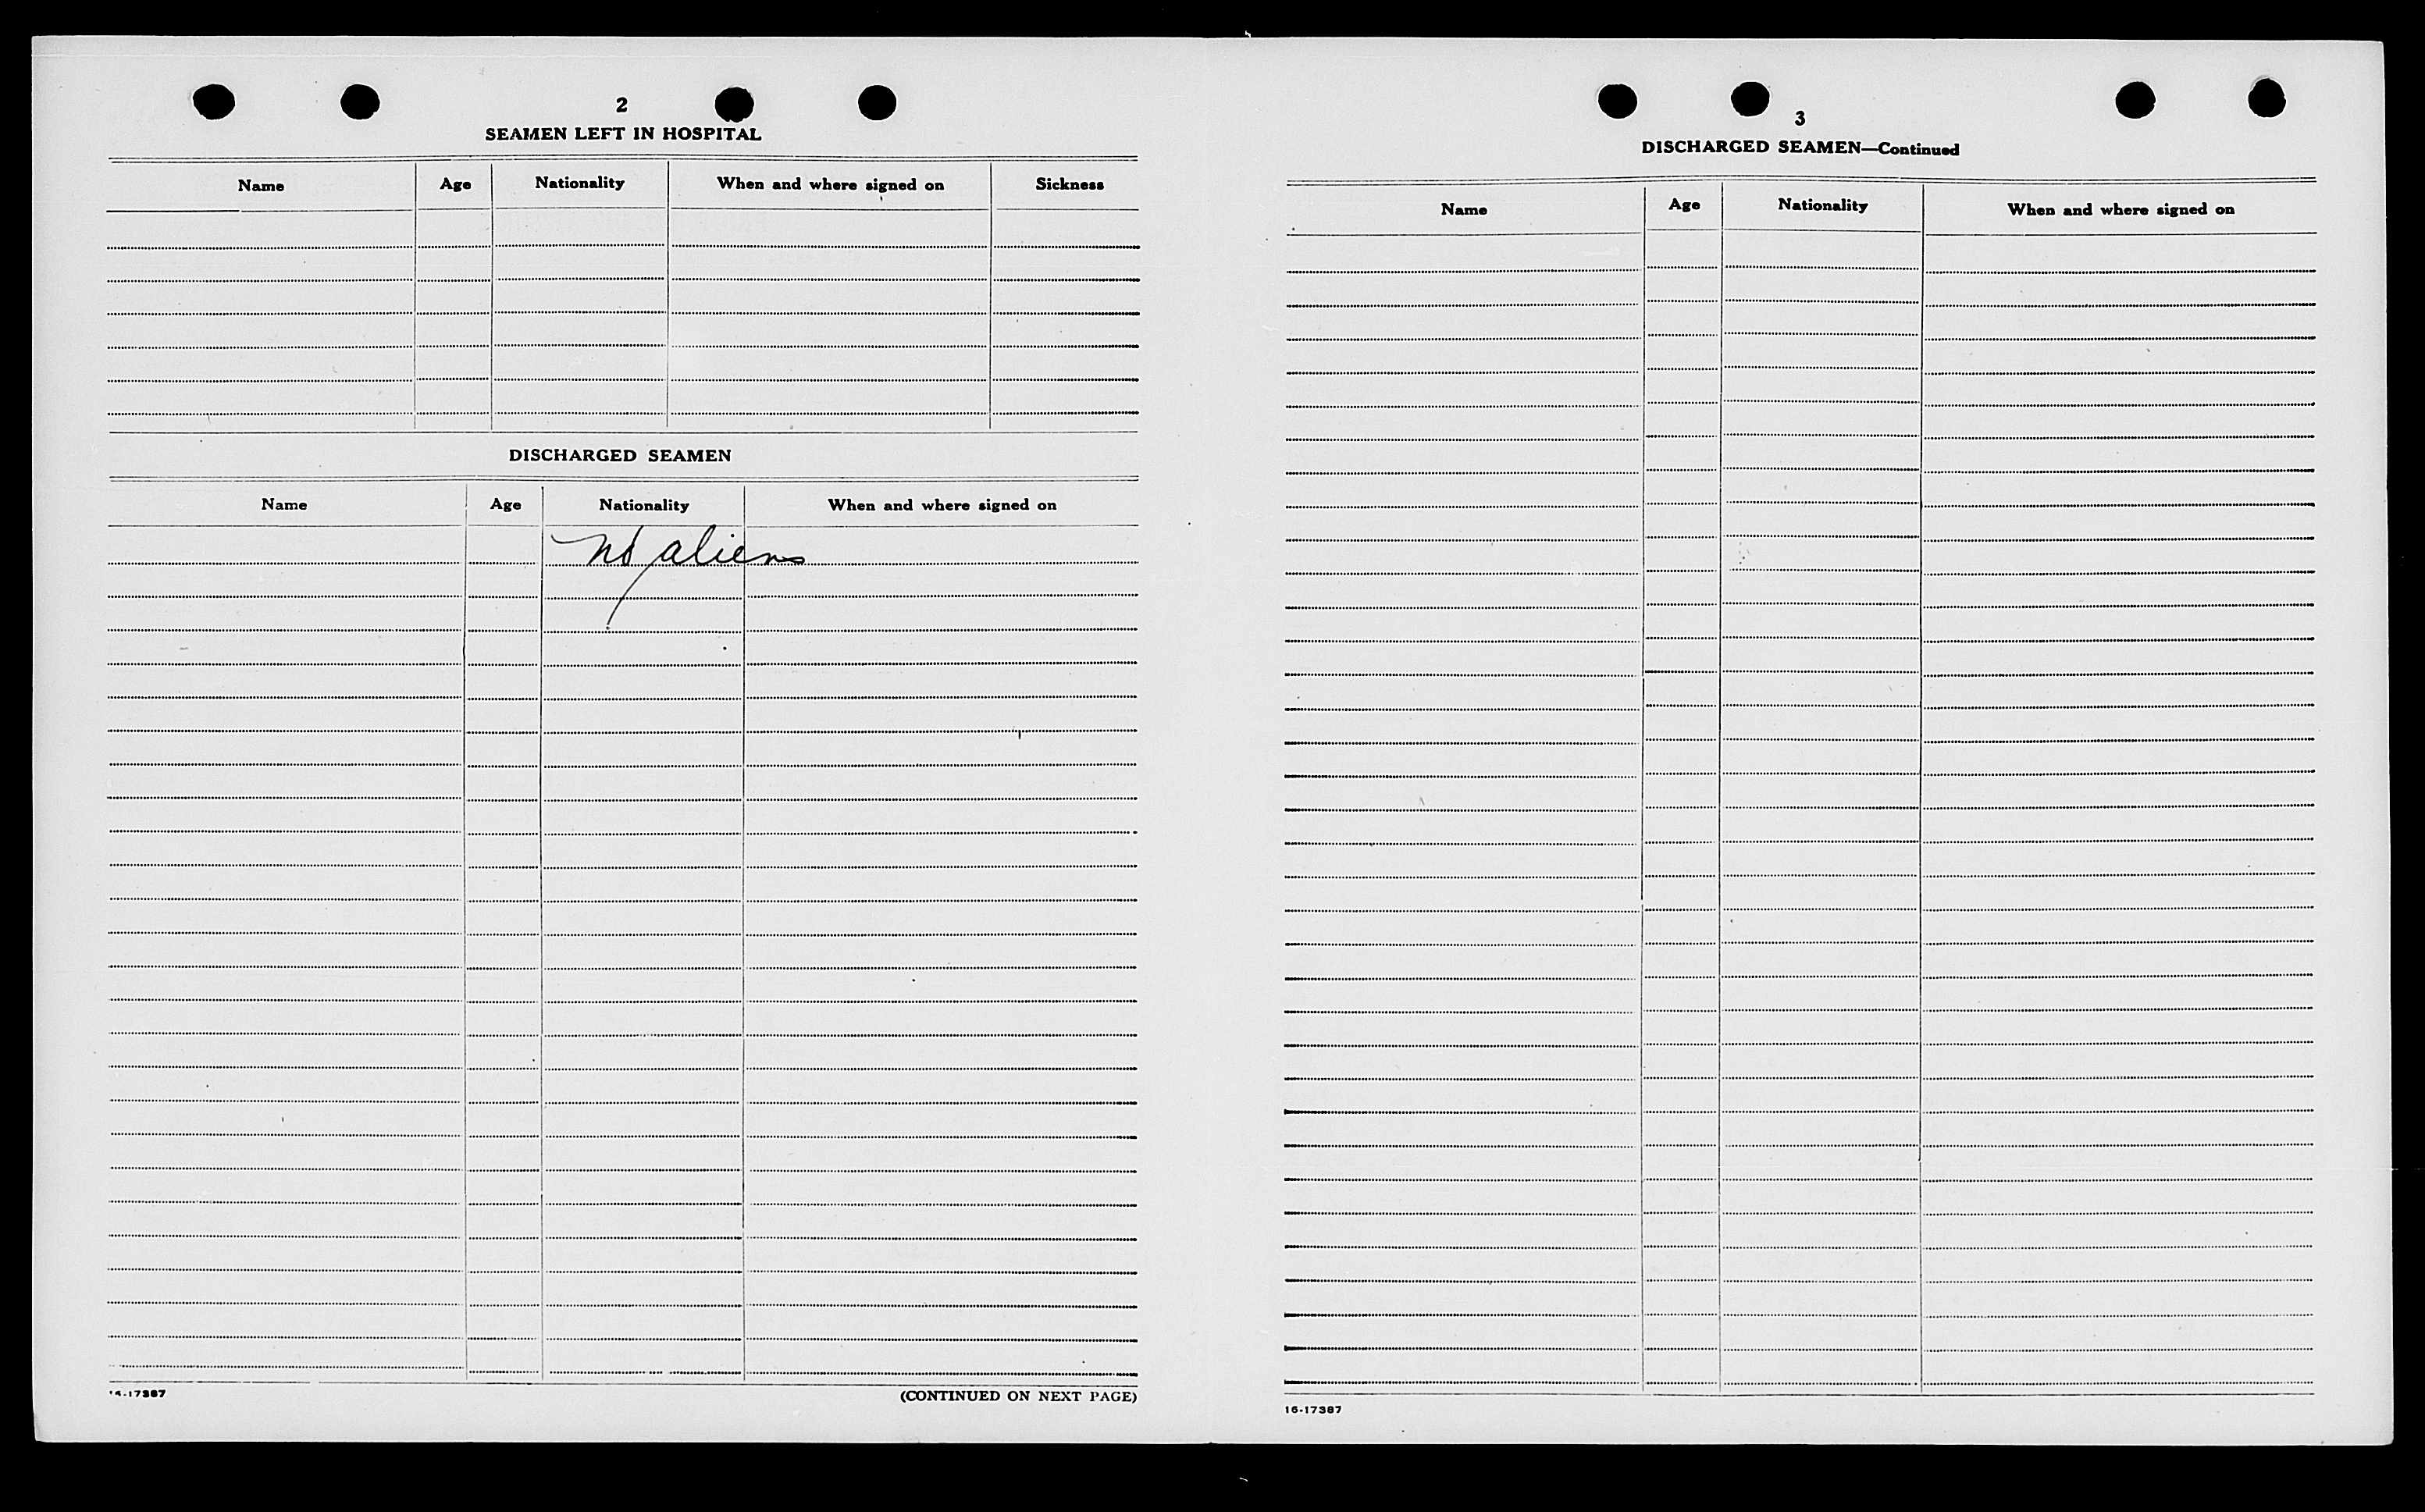 2
SEAMEN LEFT IN HOSPITAL
Name Age Nationality When and where signed on Sickness
DISCHARGED SEAMEN
Name Age Nationality When and where signed on
No aliens
(CONTINUED ON NEXT PAGE)
3
DISCHARGED SEAMEN—Continued
Name Age Nationality When and where signed on
16-17387